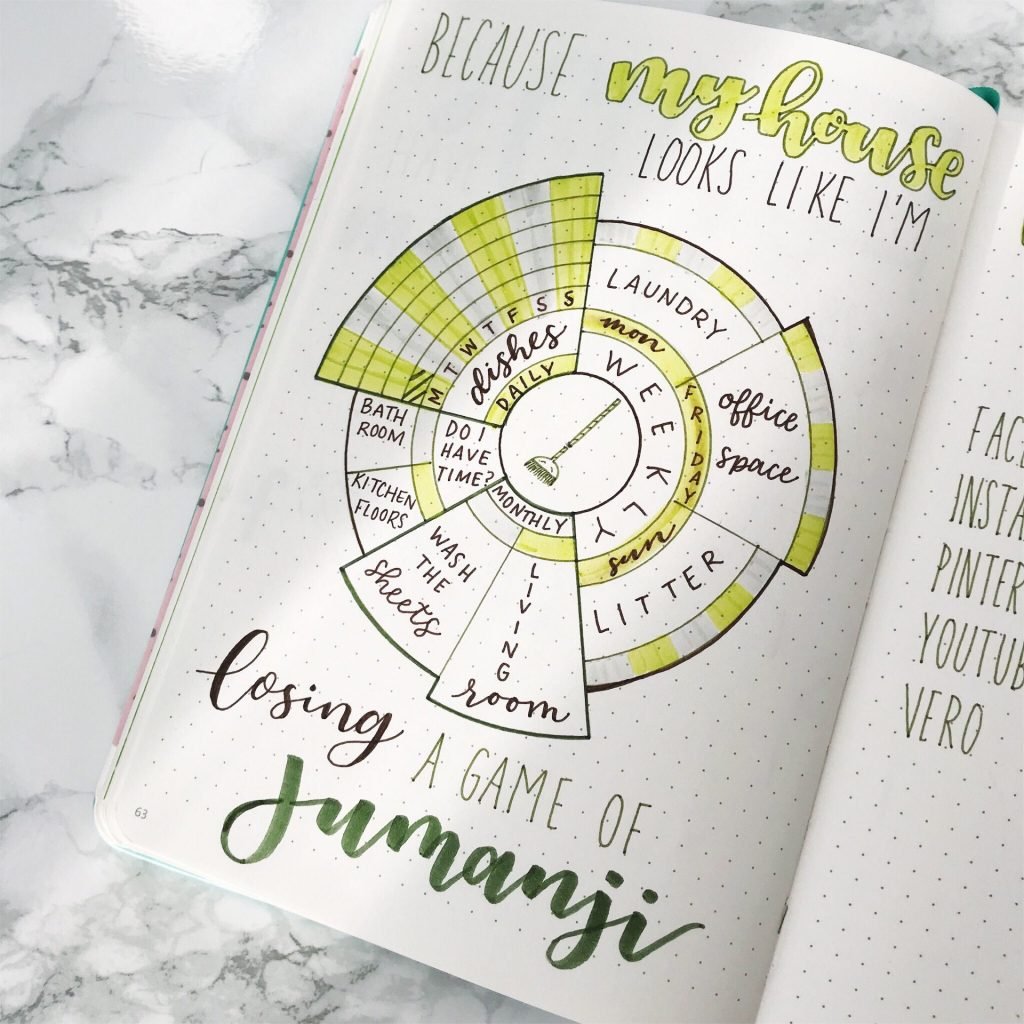 BECAUSE my house
LOOKS LIKE I'M
M T W T F S S
dishes
DAILY
LAUNDRY
mon
WEEKLY
FRIDAY
office
space
sun
LITTER
BATH
ROOM
KITCHEN
FLOORS
DO I
HAVE
TIME?
MONTHLY
WASH
THE
sheets
LIVING
room
losing
A GAME OF
Jumanji
63
VERO